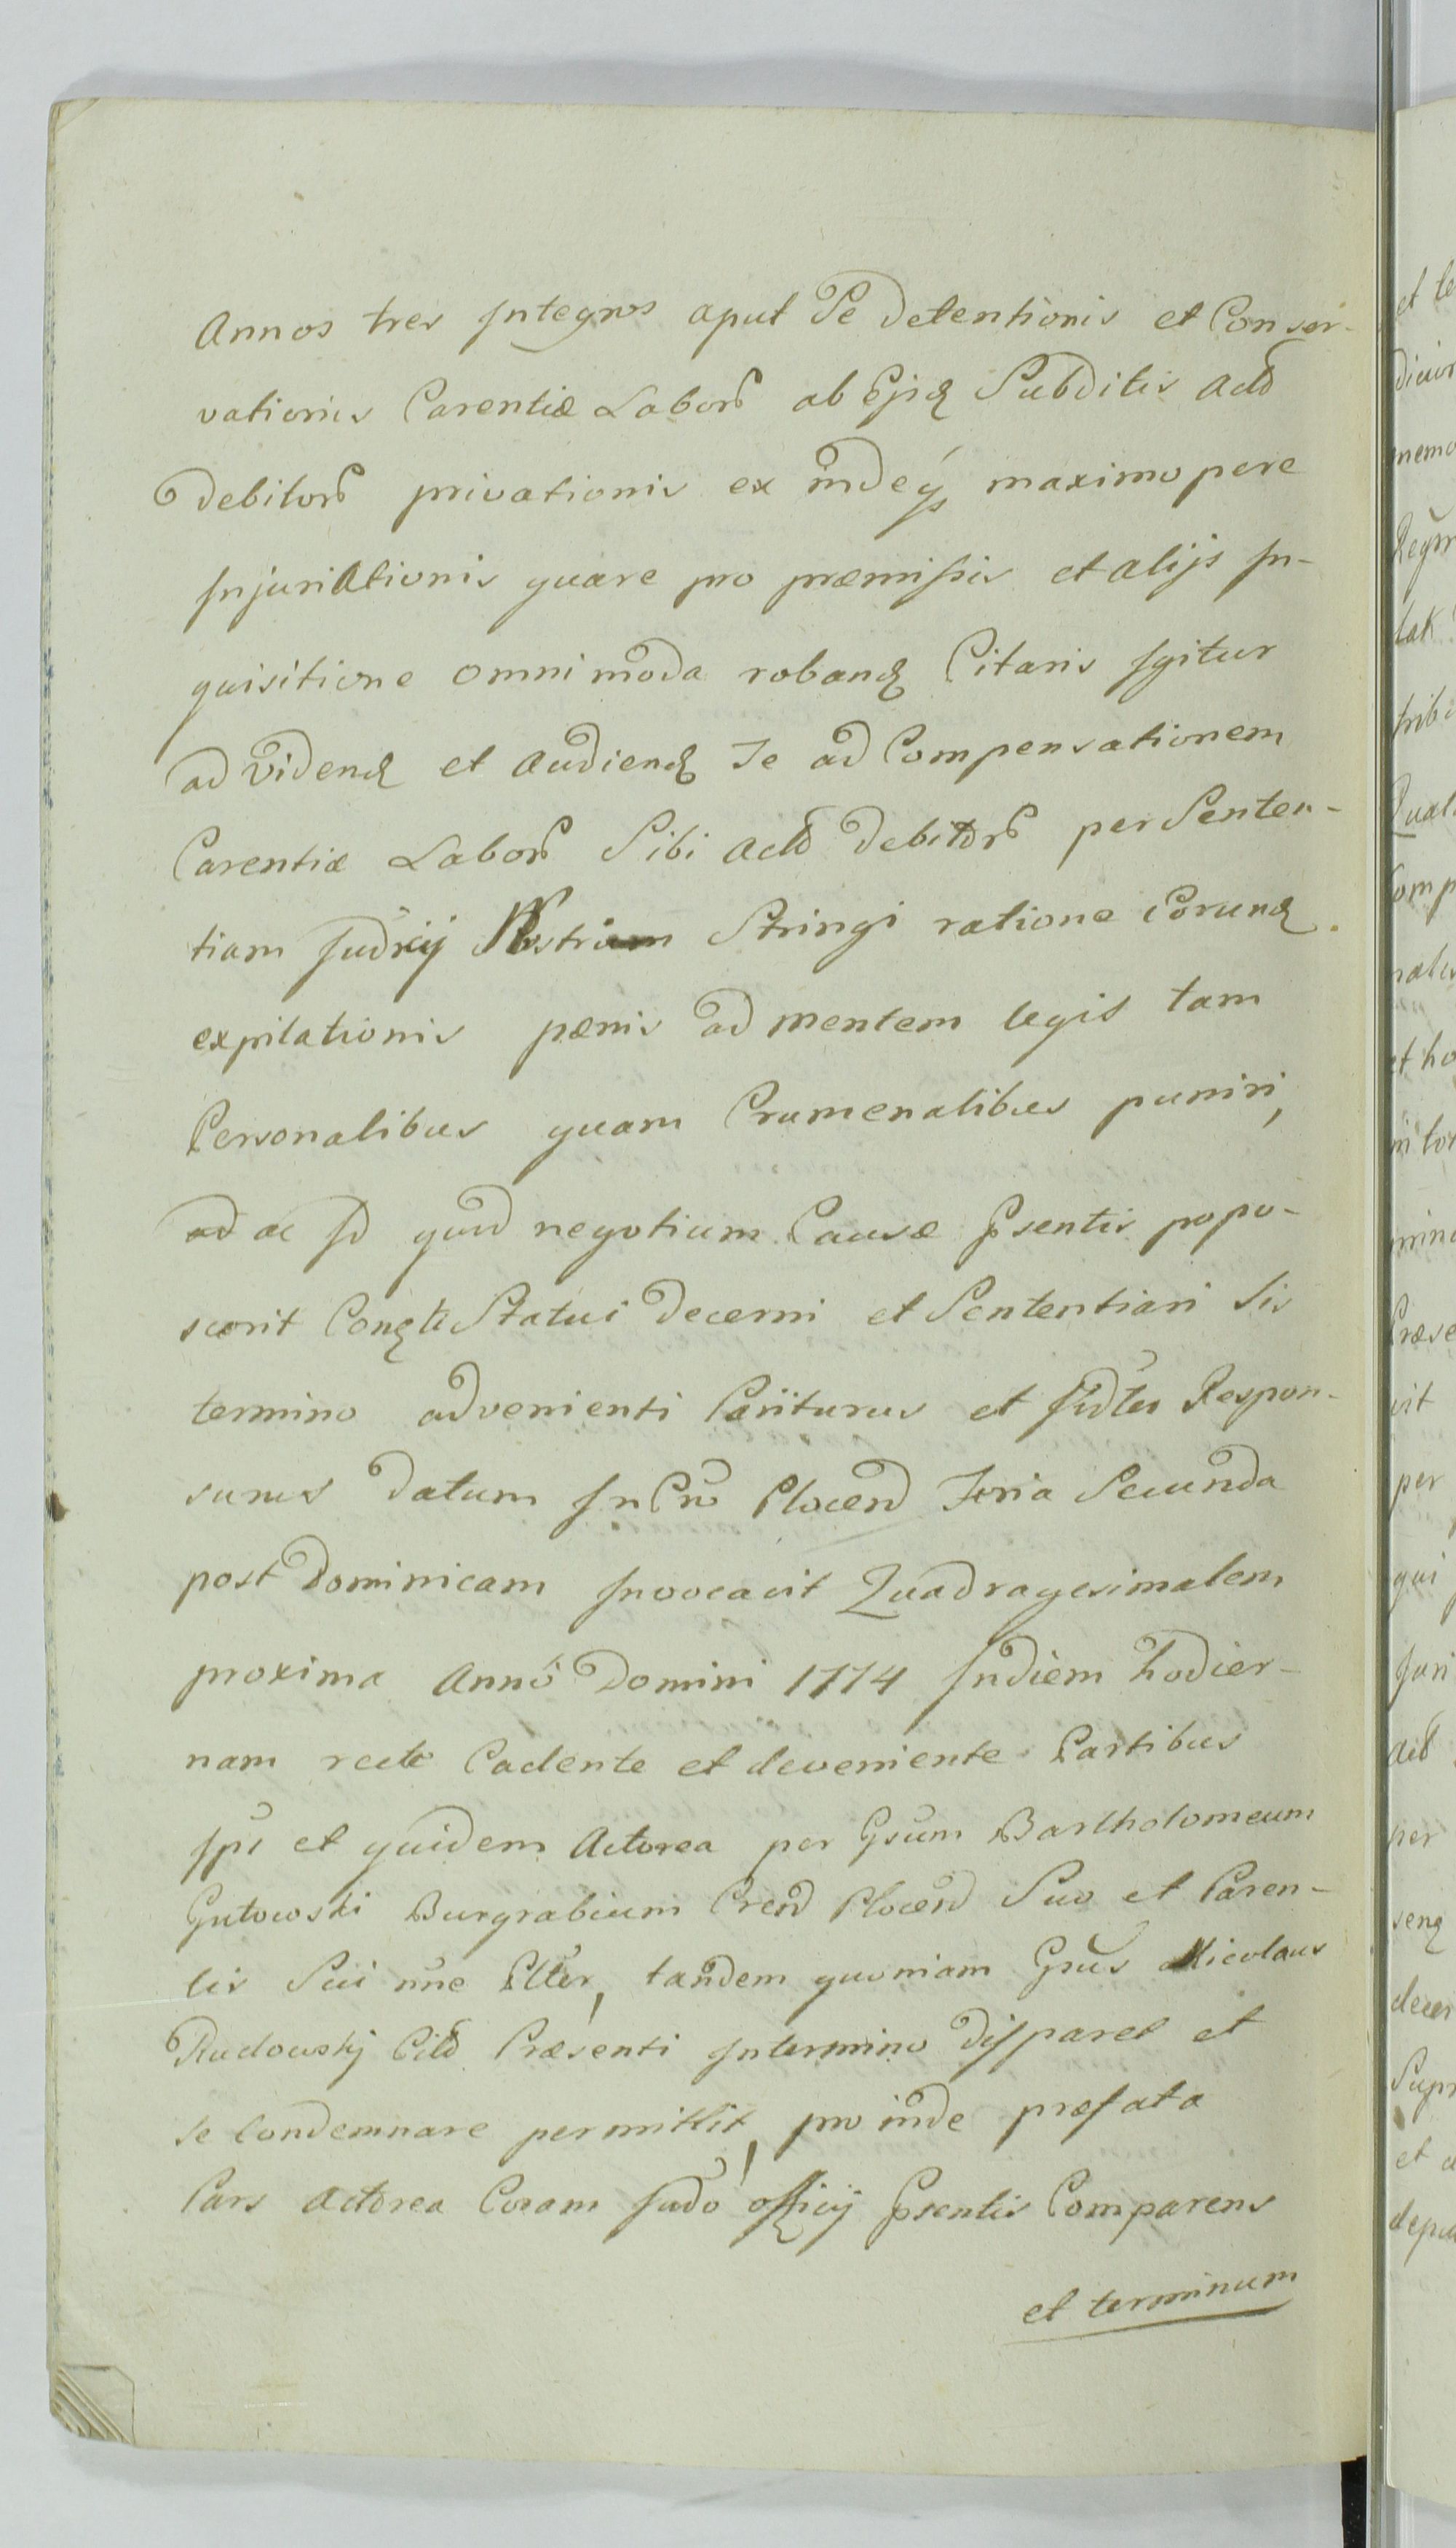 Annos tres Integros aput Se detentionis et Conser-
vationis Carentiæ Labor͠ ab Ejsq Subditis Actõ
debitor͠ privationis ex indeq́ maximopere
Injuriationis quare pro præmissis et alijs In-
quisitione omnimoda roband Citaris Igitur
ad Vidend et Audiend Te ad Compensationem
Carentiæ Labor͠ Sibi Actõ debitor͠ per Senten-
tiam Judicÿ Nostri Stringi ratione Eorund
expilationis pœnis ad mentem legis tam
Personalibus quam Crumenalibus puniri,
ad ac Id quid negotium Causæ Psentis popo-
scerit Congti Statui decerni et Sententiari Sis
termino advenienti Pariturus et Judter Respon-
surus datum In Crõ Plocen Feria Secunda
post Dominicam Invocavit Quadragesimalem
proxima Annõ Domini 1774 In diem hodier-
nam recte Cadente et deveniente Partibus
Ipi et quidem Actorea per Gsum Bartholomeum
Gutowski Burgrabium Cren Plocen Suo et Paren-
tis Sui nne Plter, tandem quoniam Gnus Nicolaus
Rudowskj Citõ Præsenti Intermino disparet et
se Condemnare permittit, proinde præfata
Pars Actorea Coram Judõ officÿ Psentis Comparens
et terminum